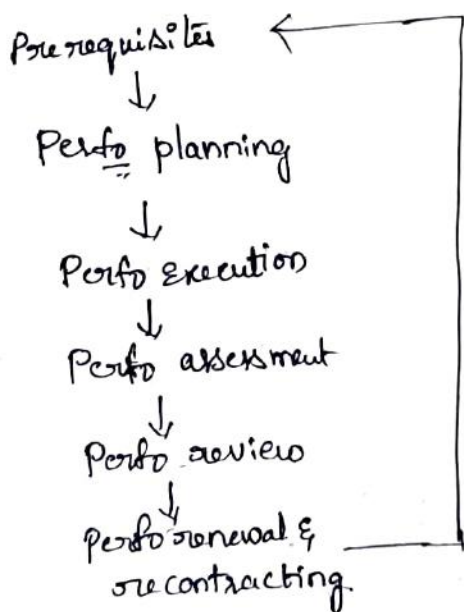 Prerequisites
Perfo planning
Perfo Execution
Perfo assessment
Perfo review
Perfo renewal &
recontracting